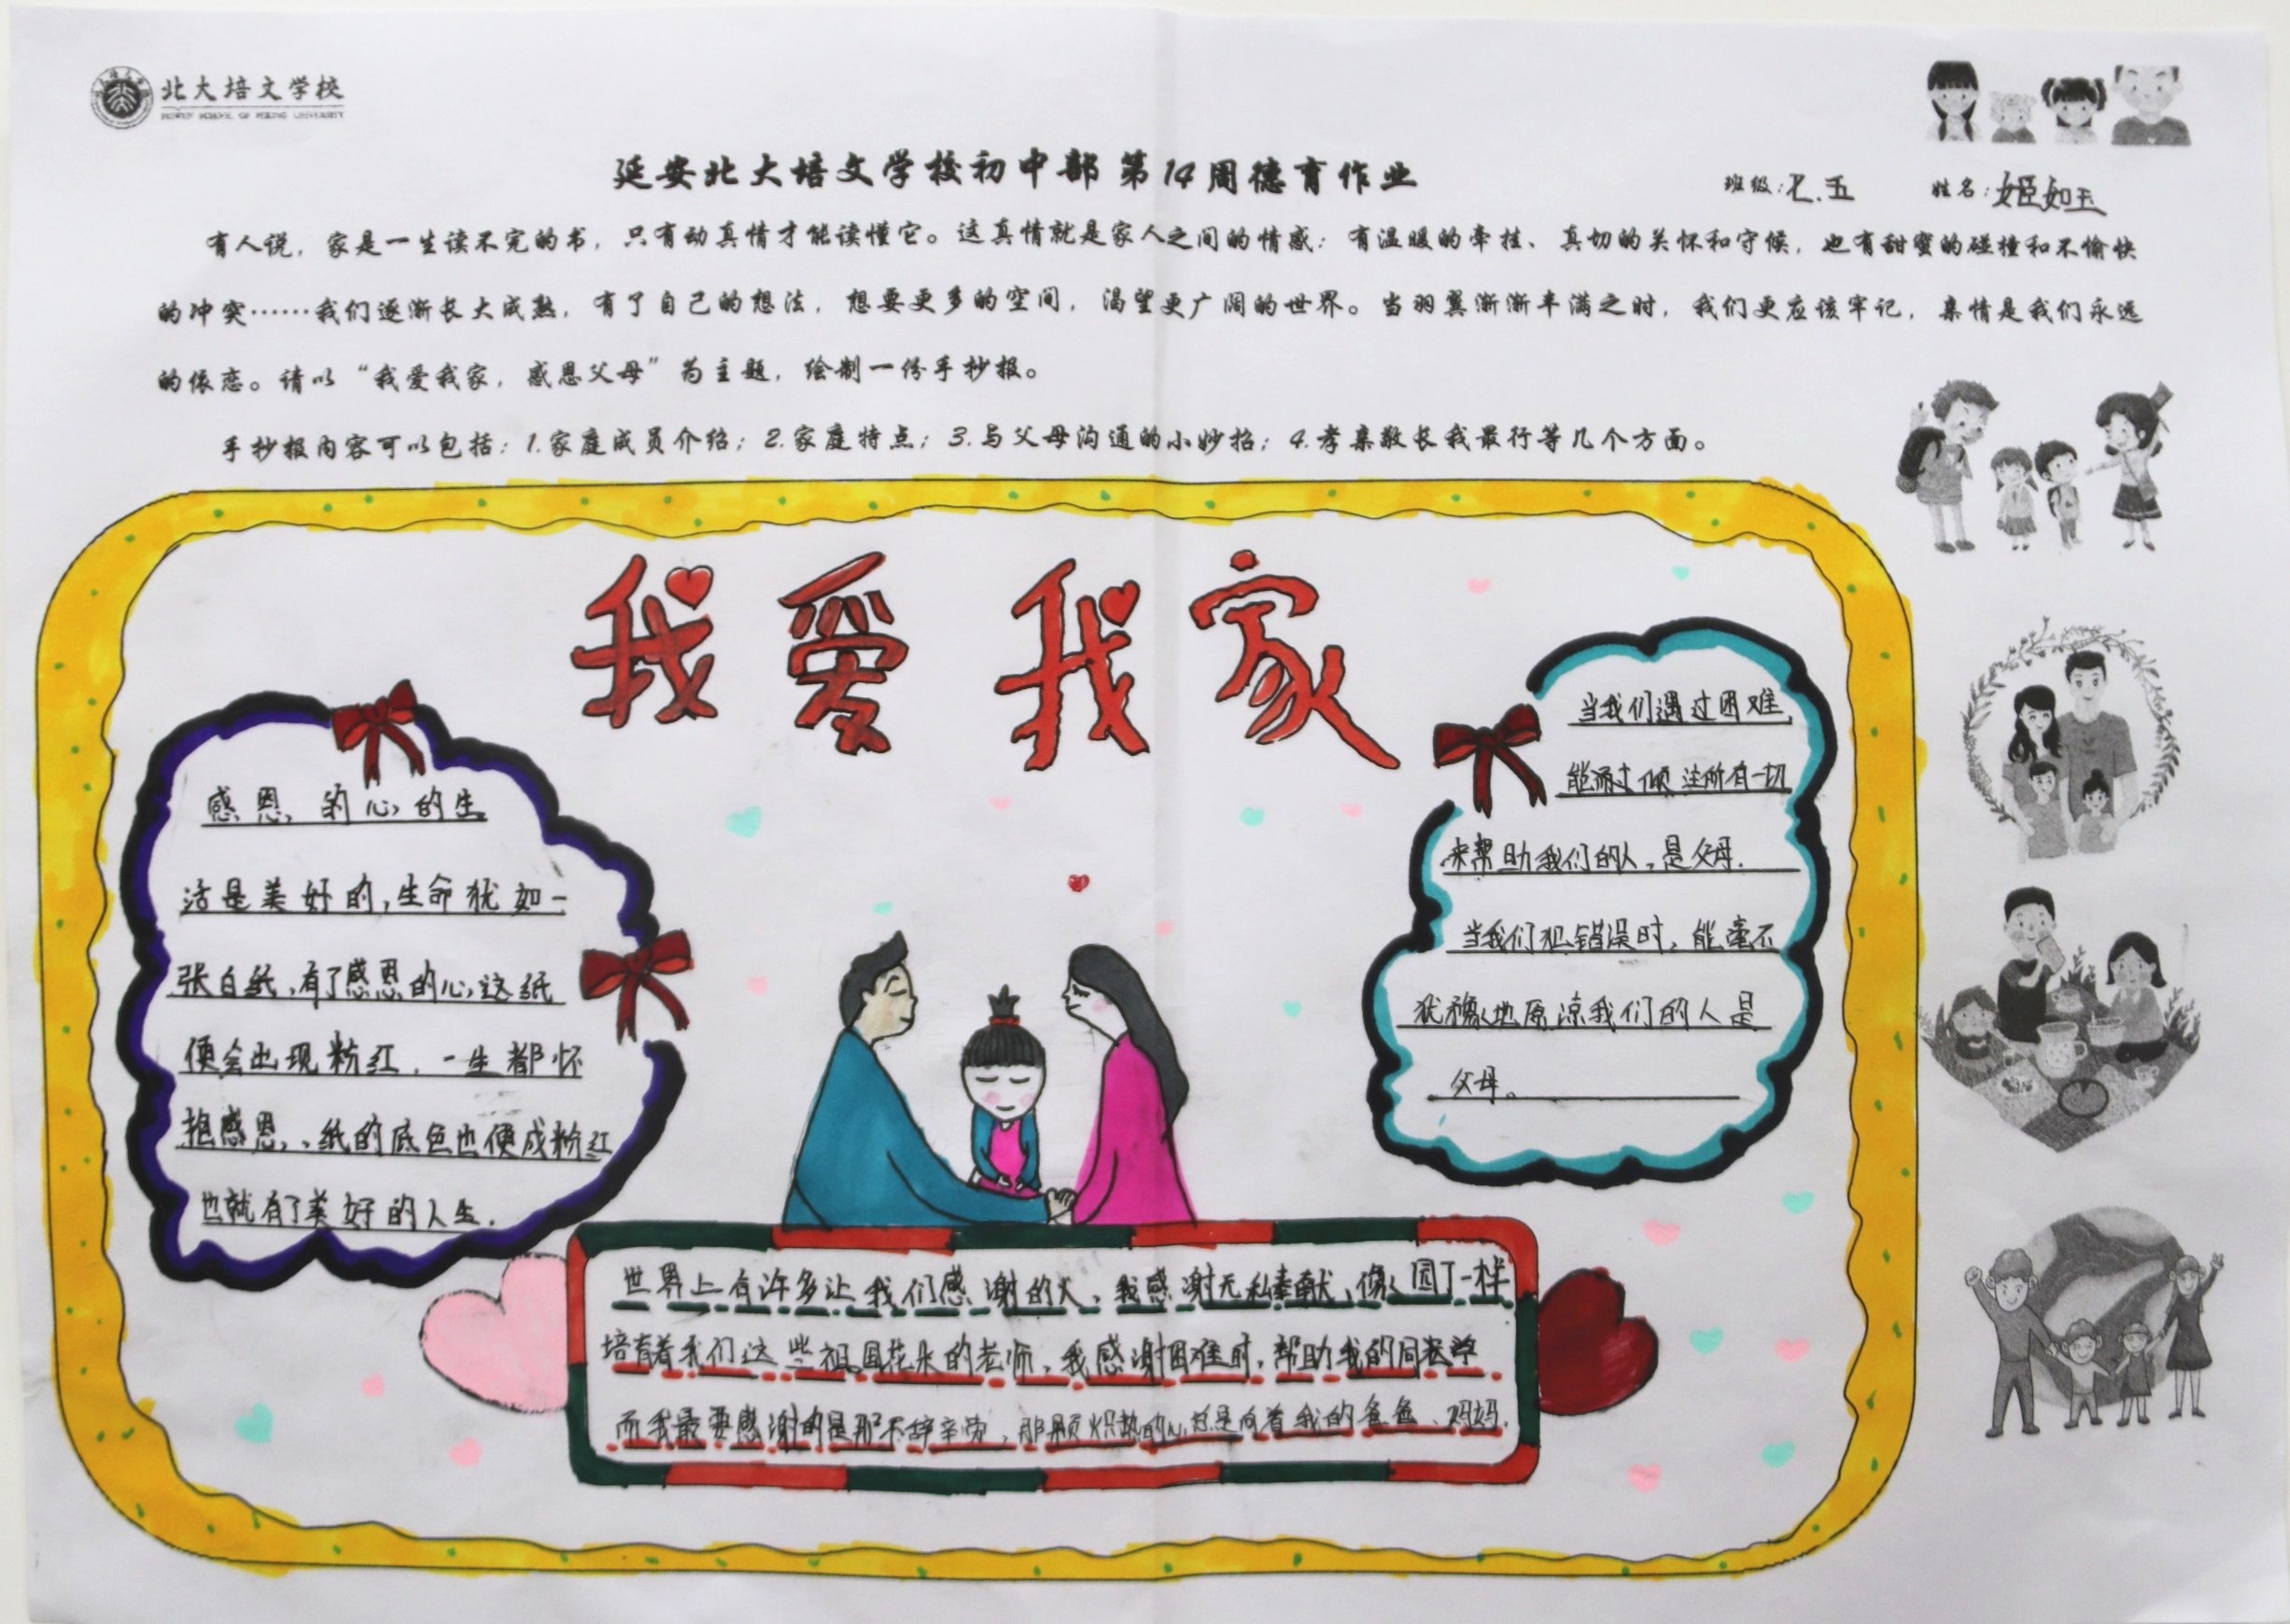 北大培文学校
PEIWEN SCHOOL OF PEKING UNIVERSITY
延安北大培文学校初中部第14周德育作业
班级:七.五 姓名:姬如玉
有人说，家是一生读不完的书，只有动真情才能读懂它。这真情就是家人之间的情感：有温暖的牵挂、真切的关怀和守候，也有甜蜜的碰撞和不愉快
的冲突……我们逐渐长大成熟，有了自己的想法，想要更多的空间，渴望更广阔的世界。当羽翼渐渐丰满之时，我们更应该牢记，亲情是我们永远
的依恋。请以“我爱我家，感恩父母”为主题，绘制一份手抄报。
手抄报内容可以包括：1.家庭成员介绍；2.家庭特点；3.与父母沟通的小妙招；4.孝亲敬长我最行等几个方面。
我爱我家
感恩，的心的生
活是美好的,生命犹如一
张白纸,有了感恩的心,这纸
便会出现粉红，一生都怀
抱感恩,、纸的底色也便成粉红
也就有了美好的人生.
当我们遇过困难,
能通过倾注所有一切
来帮助我们的人,是父母.
当我们犯错误时,能毫不
犹豫地原谅我们的人是
父母。
世界上有许多让我们感谢的人、我感谢无私奉献,像园丁一样
培育着我们这些祖国花朵的老师、我感谢困难时,帮助我的同学
而我最要感谢的是那不辞辛劳,那颗炽热的心总是向着我的爸爸、妈妈.